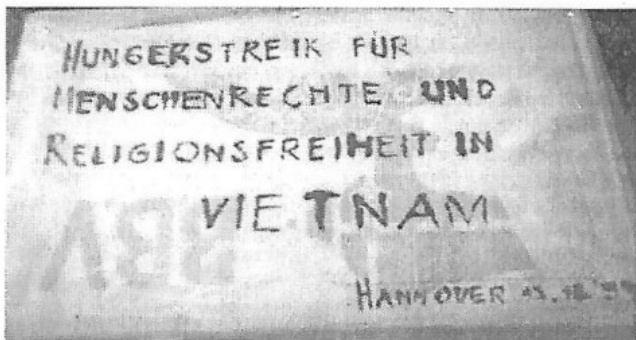 HUNGERSTREIK FÜR
MENSCHENRECHTE UND
RELIGIONSFREIHEIT IN
VIETNAM
HANNOVER